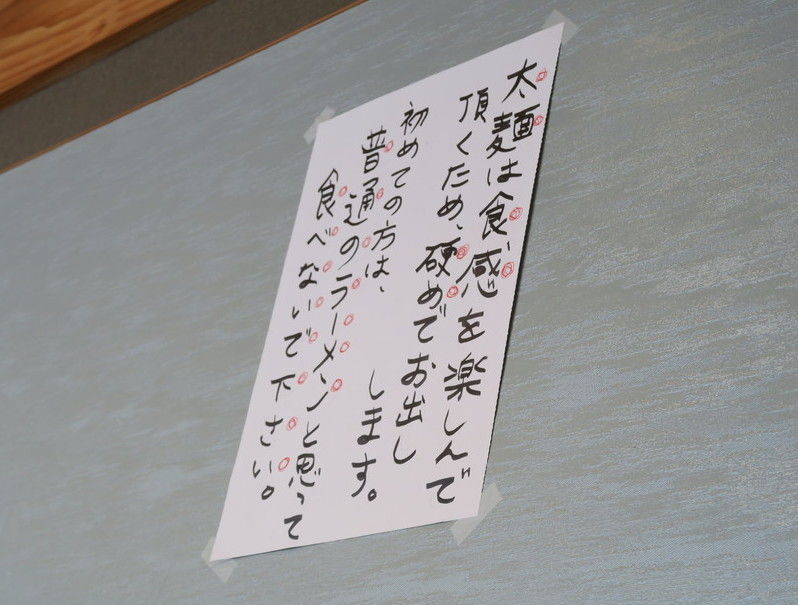 太麺は食感を楽しんで
頂くため、硬めでお出し
します。
初めての方は、
普通のラーメンと思って
食べないで下さい。